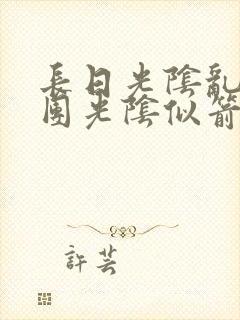 長日光陰亂
團光陰似箭
許芸